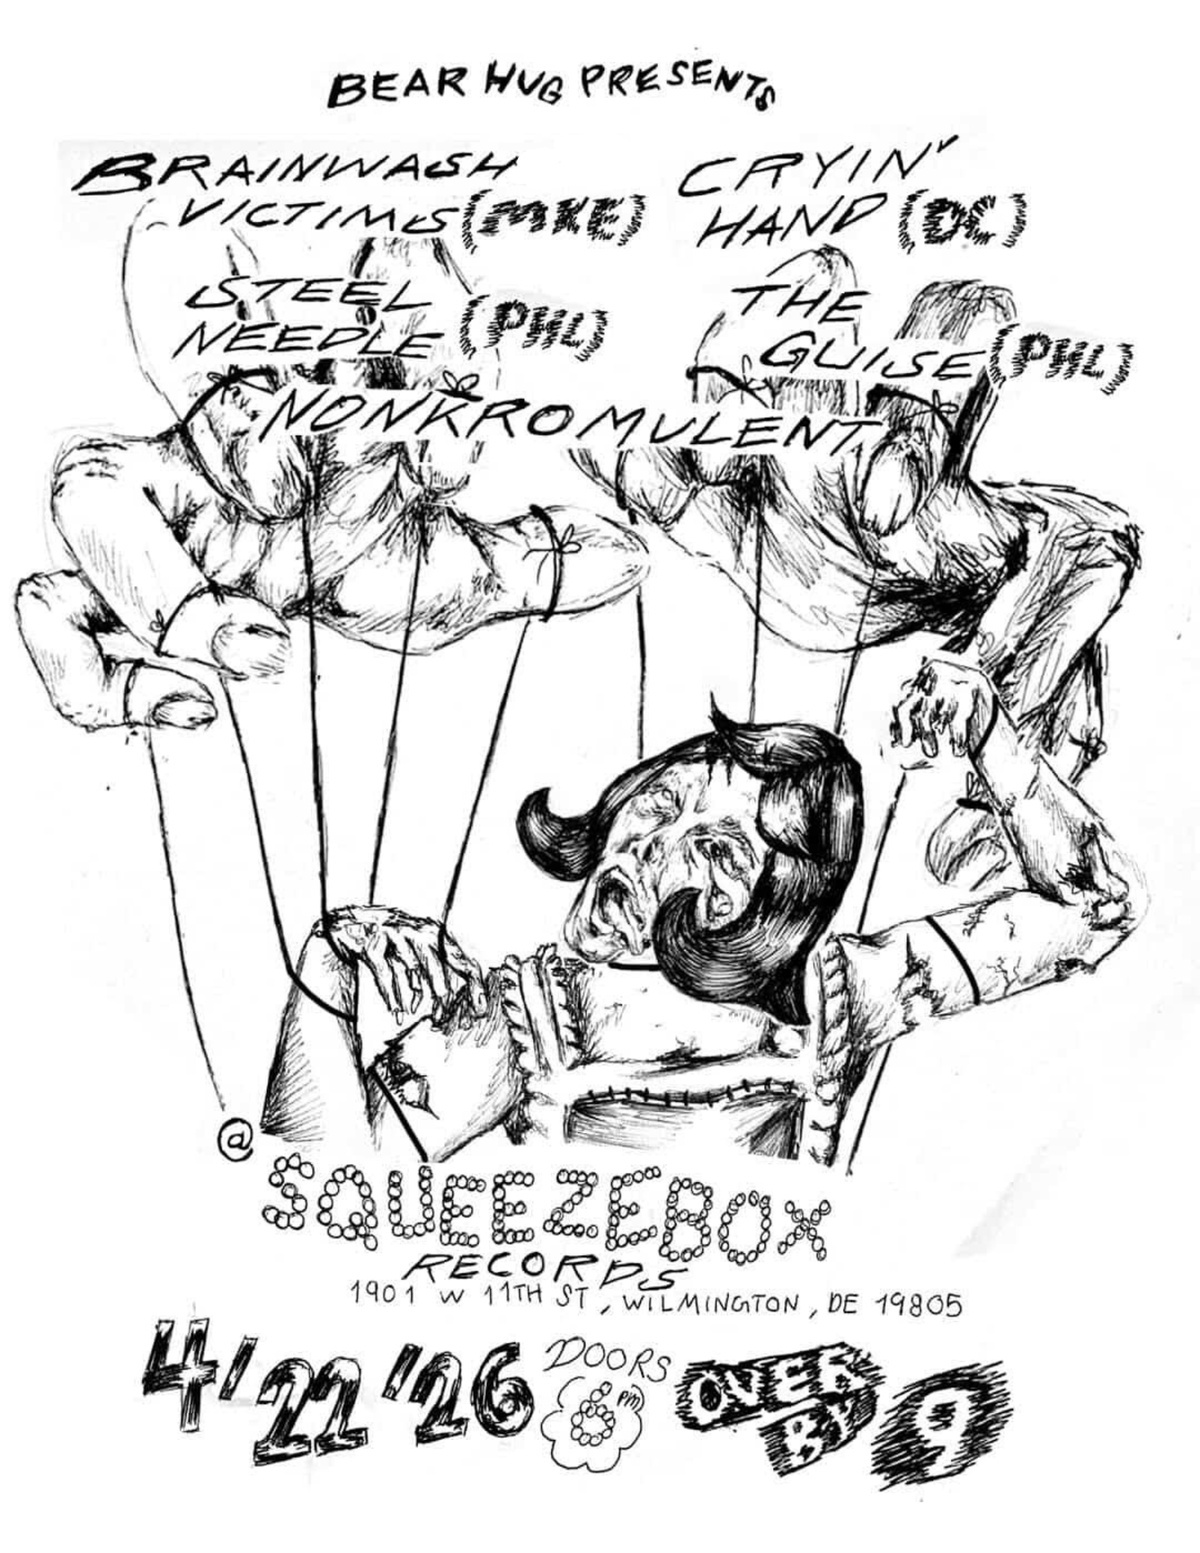 BEAR HUG PRESENTS
BRAINWASH
VICTIMS (MKE)
CRYIN'
HAND (DC)
STEEL
NEEDLE (PHL)
THE
GUISE (PHL)
NONKROMULENT
@
SQUEEZEBOX
RECORDS
1901 W 11TH ST, WILMINGTON, DE 19805
4'22'26
DOORS
6 PM
OVER
BY 9